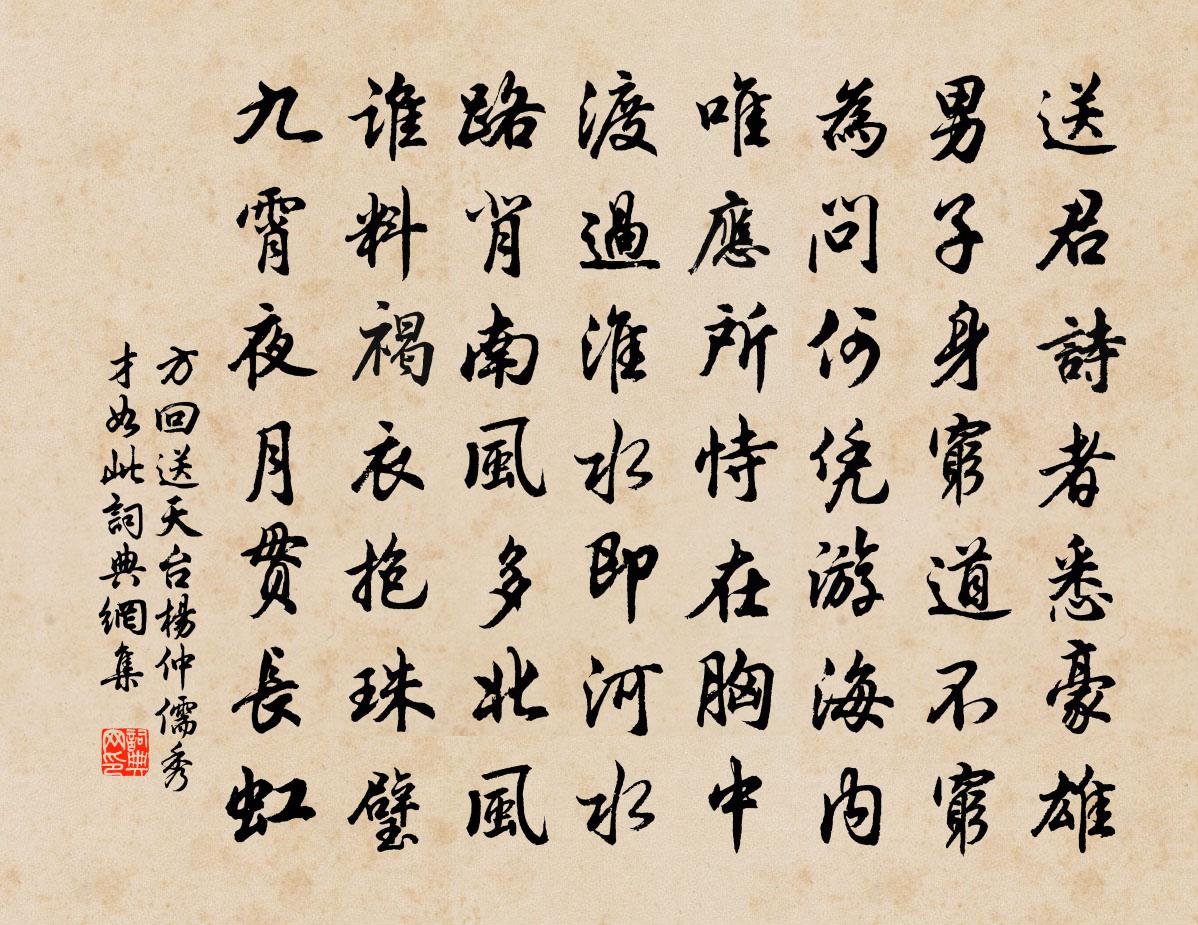 送君詩者悉豪雄
男子身窮道不窮
為問何凭游海内
唯應所恃在胸中
渡過淮水即河水
路背南風多北風
誰料褐衣抱珠璧
九霄夜月貫長虹
方回送天台楊仲儒秀
才如此詞典網集
詞典
网印